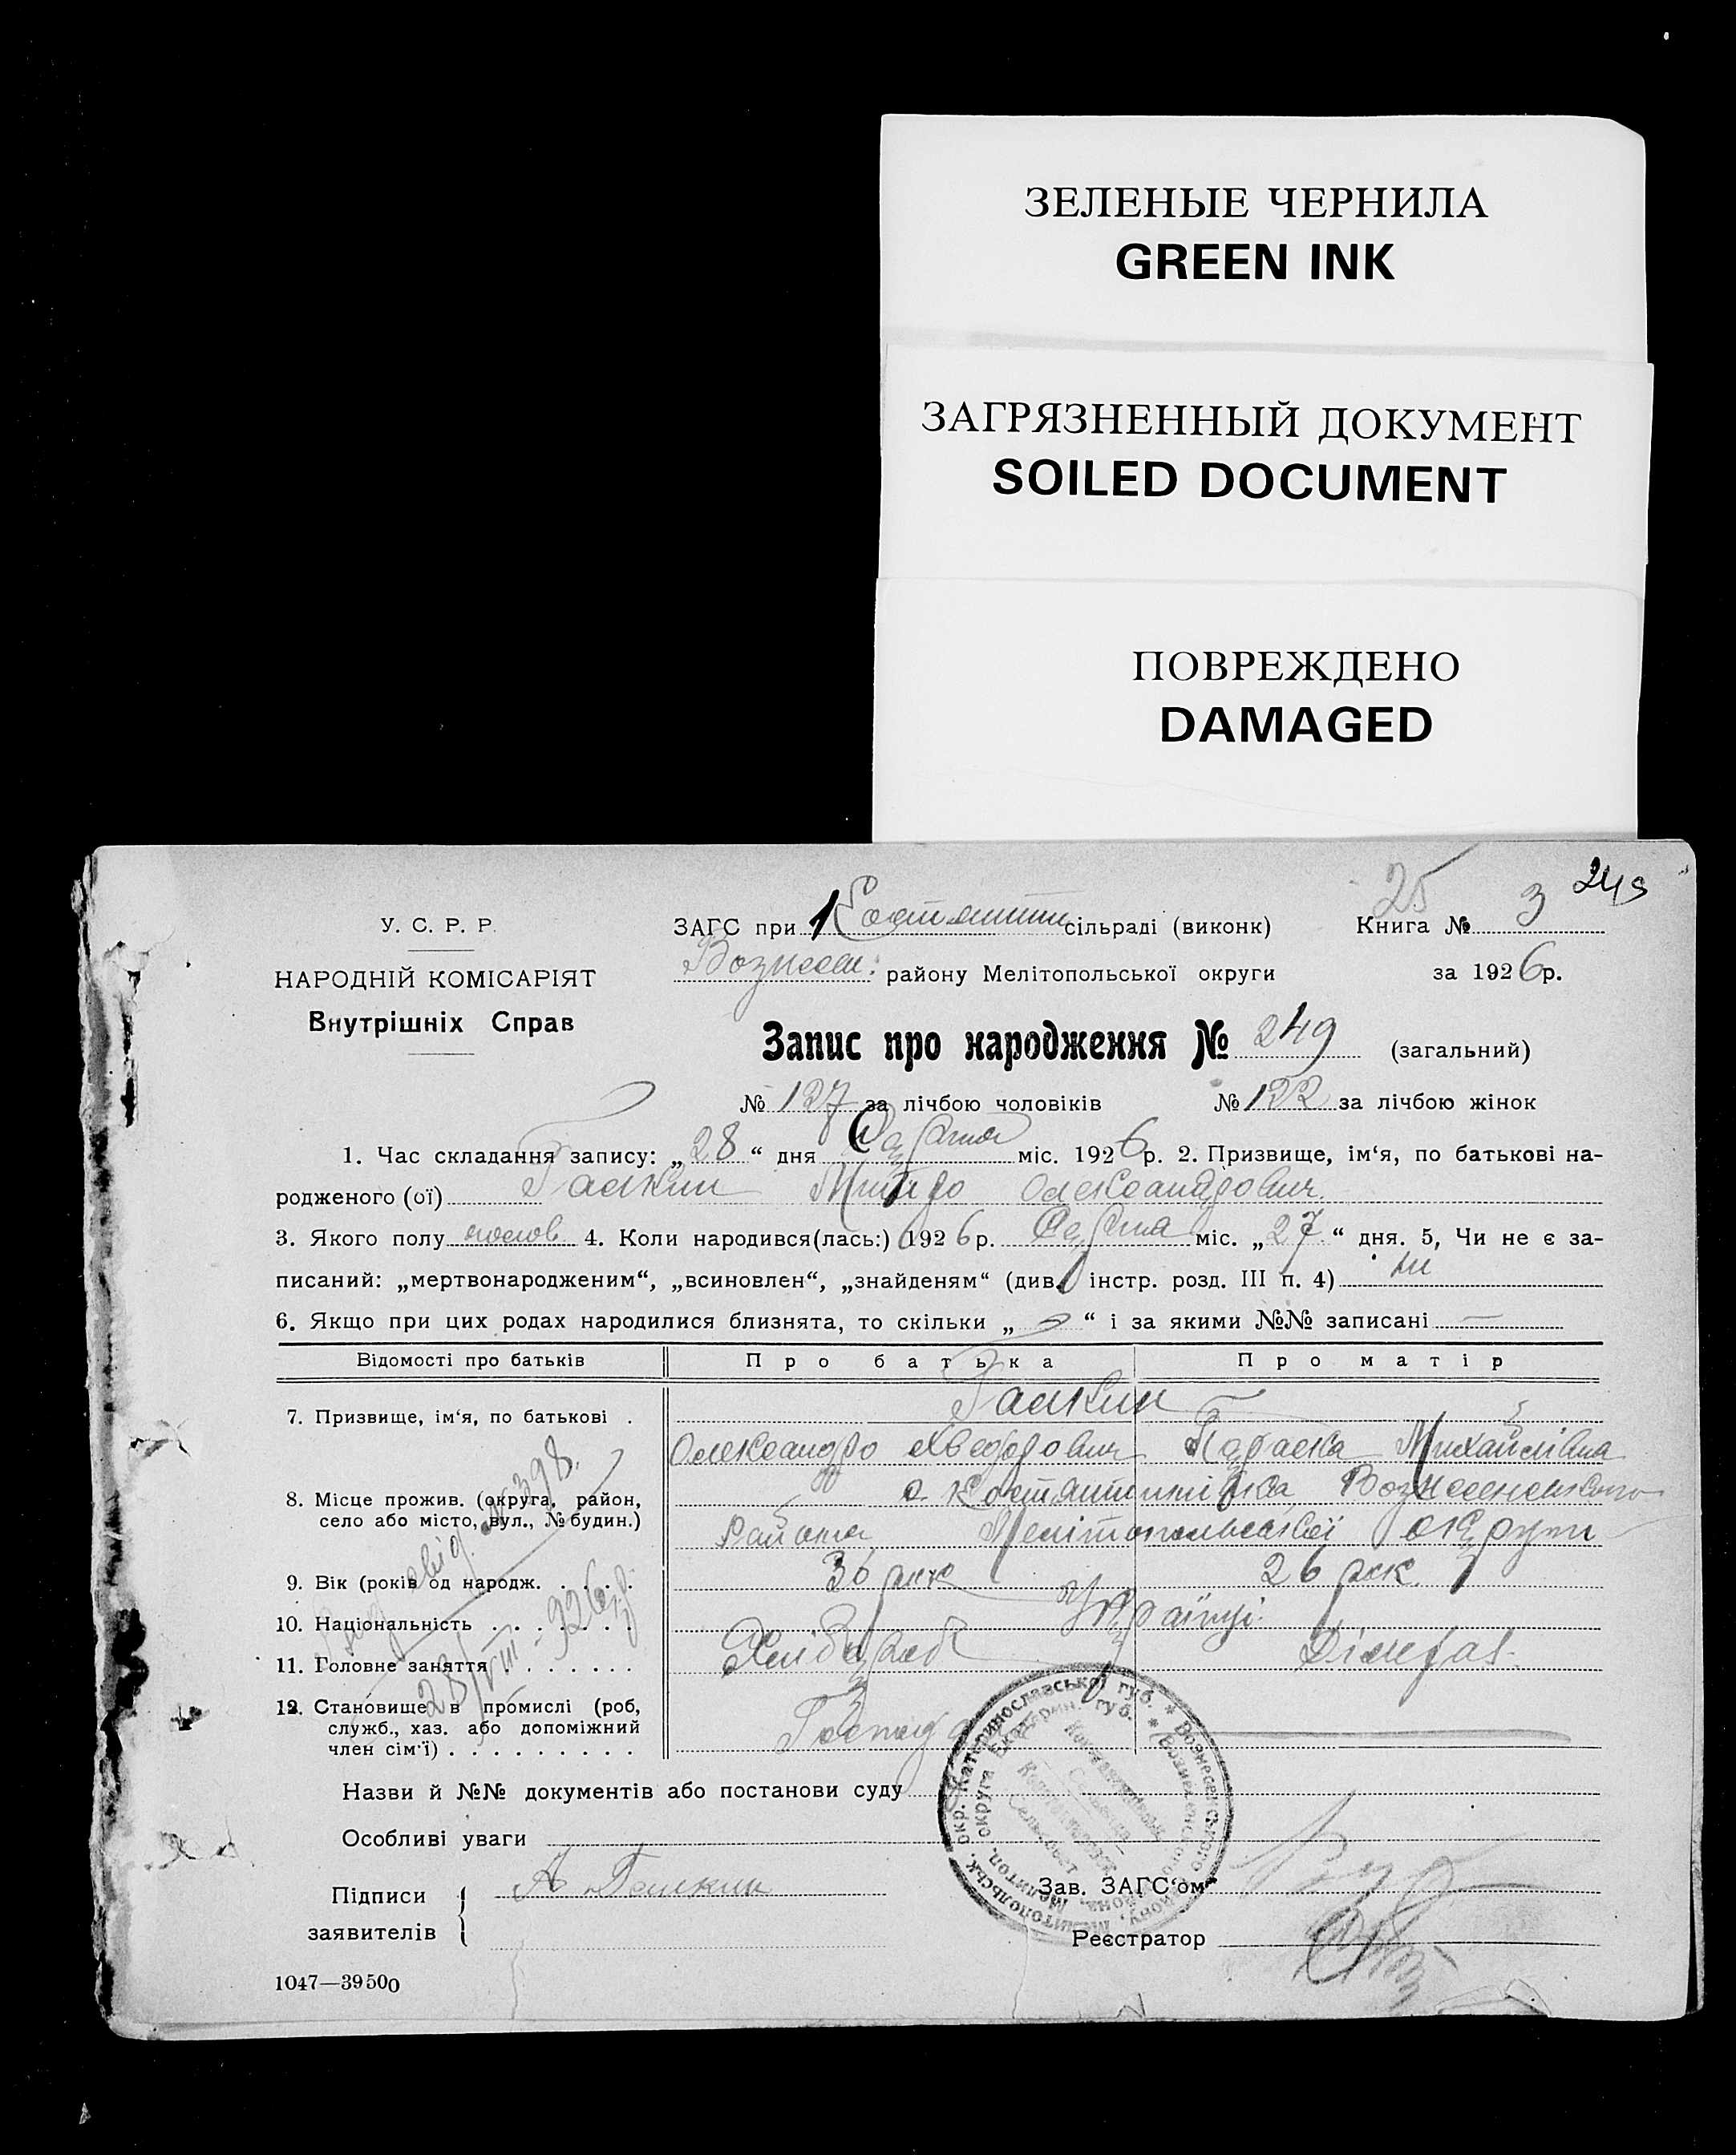 ЗЕЛЕНЫЕ ЧЕРНИЛА
GREEN INK
ЗАГРЯЗНЕННЫЙ ДОКУМЕНТ
SOILED DOCUMENT
ПОВРЕЖДЕНО
DAMAGED
25 249
У. С. Р. Р.
НАРОДНІЙ КОМІСАРІЯТ
Внутрішніх Справ
ЗАГС при 1 Костянтин сільраді (виконк) Книга № 3
Вознесен. району Мелітопольської округи за 1926 р.
Запис про народження № 249 (загальний)
№ 127 за лічбою чоловіків № 122 за лічбою жінок
1. Час складання запису: „28“ дня Серпня міс. 1926 р. 2. Призвище, ім‘я, по батькові на-
родженого (ої) Галкин Митро Олександрович
3. Якого полу чолов. 4. Коли народився(лась:) 1926 р. Серпня міс. „27“ дня. 5, Чи не є за-
писаний: „мертвонародженим“, „всиновлен“, „знайденям“ (див. інстр. розд. III п. 4) ні
6. Якщо при цих родах народилися близнята, то скільки „—“ і за якими №№ записані —
Відомості про батьків Про батька Про матір
7. Призвище, ім‘я, по батькові . Галкин
Олександро Хведорович Параска Михайлівна
8. Місце прожив. (округа, район,
село або місто, вул., № будин.)
с. Костянтинівка Вознесенського
Району Мелітопольської округи
9. Вік (років од народж. . . . . . 36 рік 26 рік
10. Національність . . . . . . . Українці
11. Головне заняття . . . . . . Хлібороб
12. Становище в промислі (роб,
служб., хаз. або допоміжний
член сім‘ї) . . . . . . . . .
Господар
№ 398.
28/VIII-926 р.
Назви й №№ документів або постанови суду
Особливі уваги
Підписи
заявителів
А Галкин
Зав. ЗАГС‘ом
Реєстратор
1047—39500